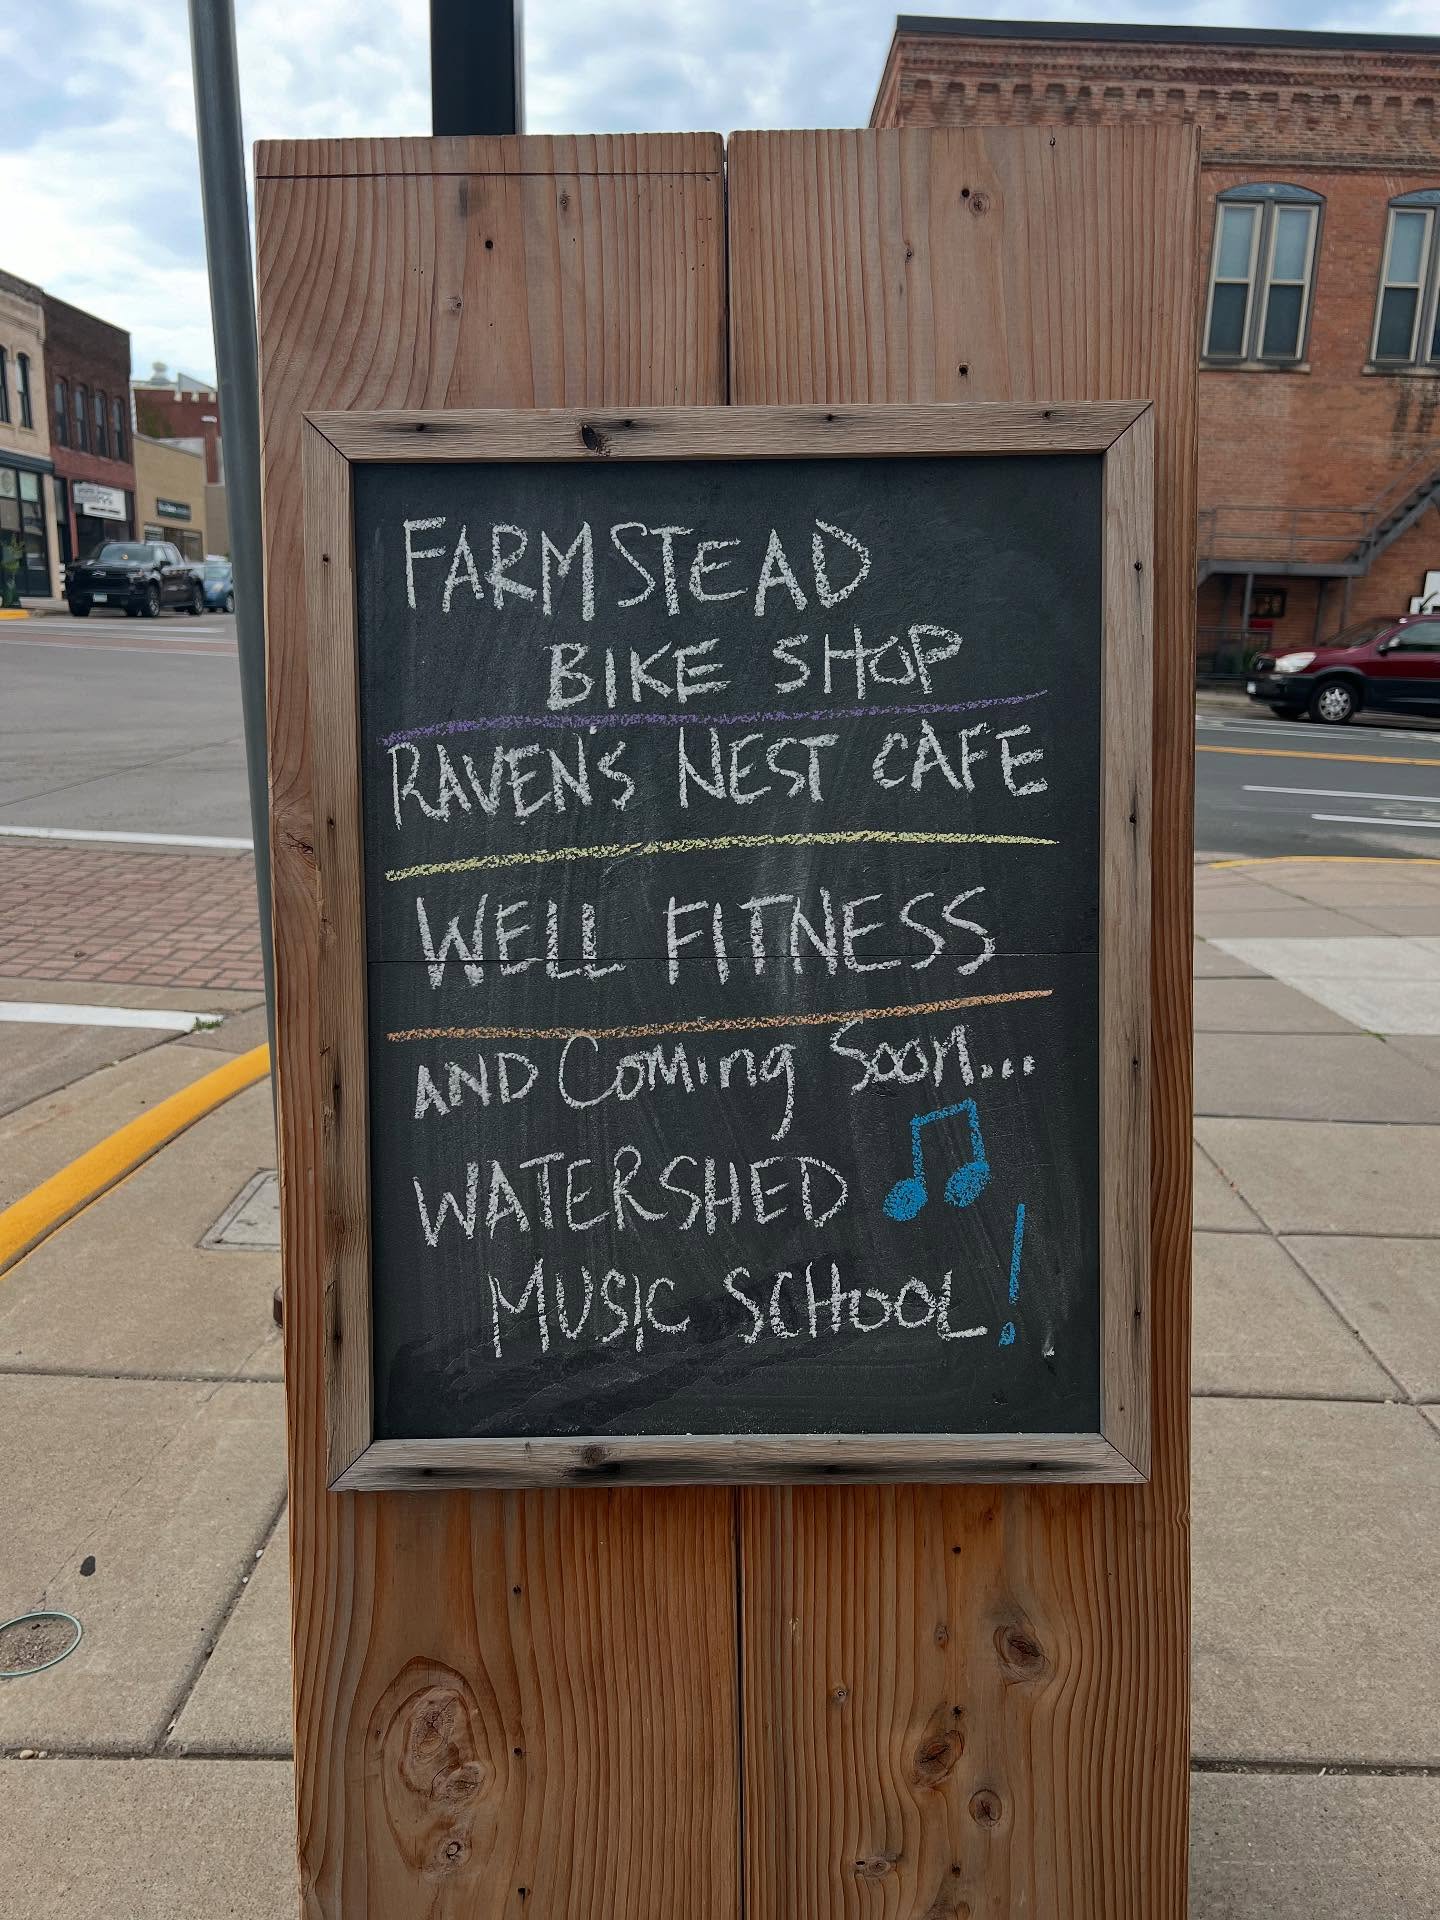 FARMSTEAD
BIKE SHOP
RAVEN'S NEST CAFE
WELL FITNESS
AND Coming Soon...
WATERSHED
MUSIC SCHOOL!